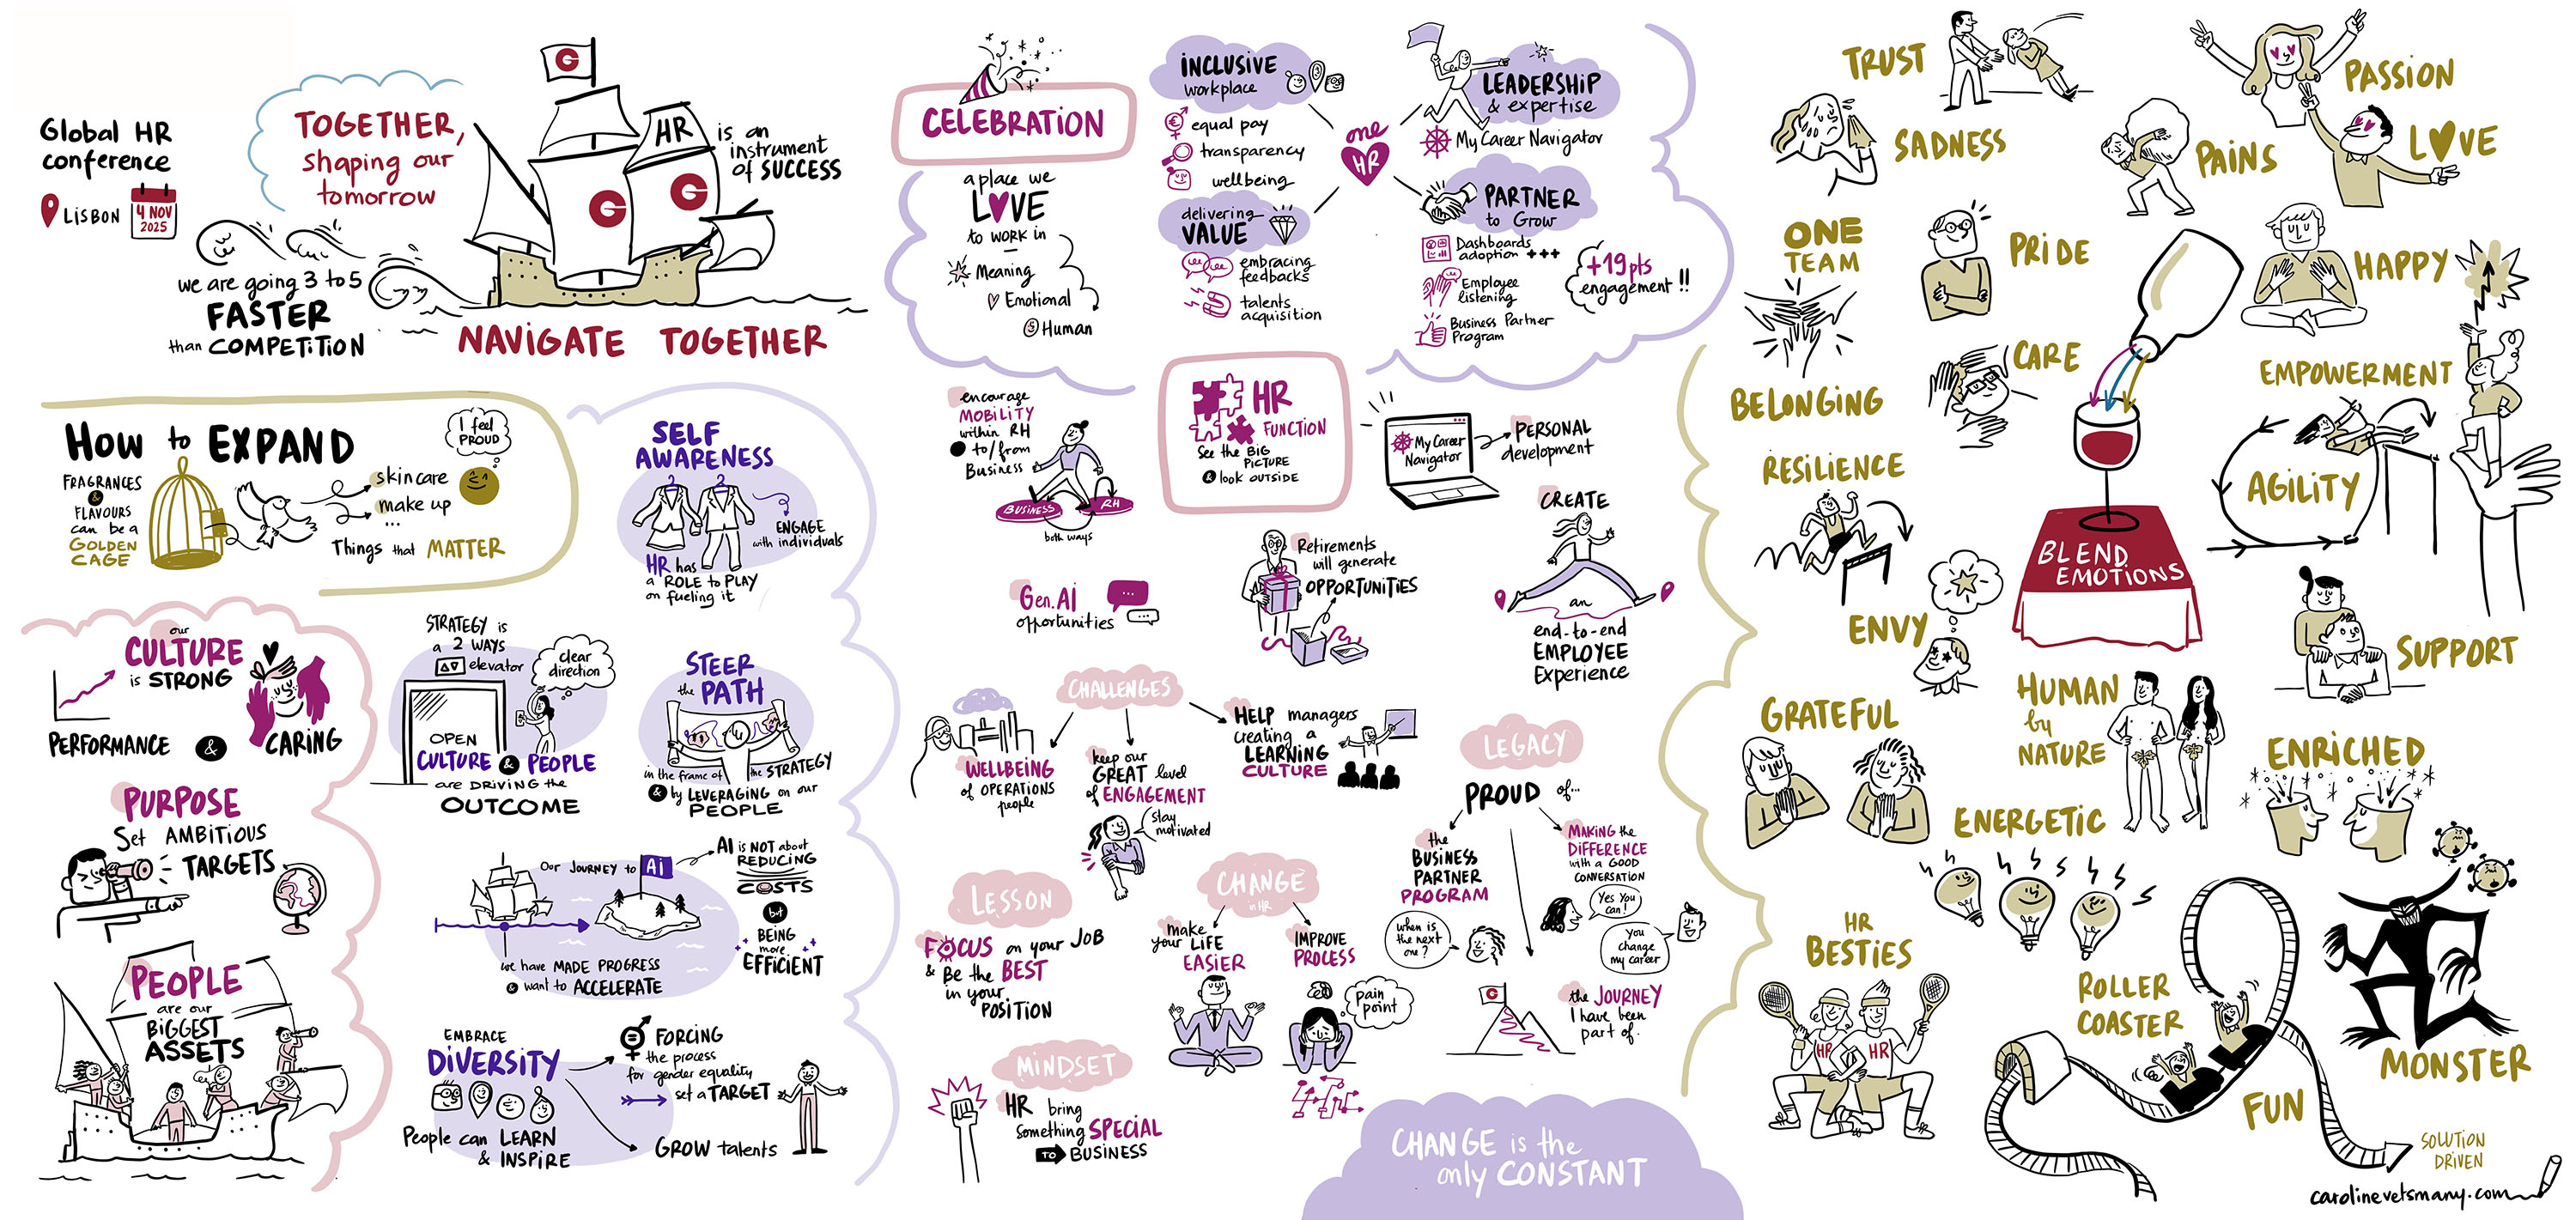 Global HR
conference
LISBON
4 NOV
2025
TOGETHER,
shaping our
tomorrow
G
HR
G
G
is an
instrument
of SUCCESS
we are going 3 to 5
FASTER
than COMPETITION
NAVIGATE TOGETHER
HOW to EXPAND
FRAGRANCES
&
FLAVOURS
can be a
GOLDEN
CAGE
skincare
make up
...
Things that MATTER
I feel
PROUD
SELF
AWARENESS
ENGAGE
with individuals
HR has
a ROLE to PLAY
on fueling it
our
CULTURE
is STRONG
PERFORMANCE & CARING
PURPOSE
Set AMBITIOUS
TARGETS
PEOPLE
are our
BIGGEST
ASSETS
STRATEGY is
a 2 WAYS
elevator
clear
direction
OPEN
CULTURE & PEOPLE
are DRIVING the
OUTCOME
STEER
the PATH
in the frame of the STRATEGY
& by LEVERAGING on our
PEOPLE
OUR JOURNEY to AI
AI is NOT about
REDUCING
COSTS
but
BEING
more
EFFICIENT
we have MADE PROGRESS
& want to ACCELERATE
EMBRACE
DIVERSITY
People can LEARN
& INSPIRE
FORCING
the process
for gender equality
set a TARGET
GROW talents
CELEBRATION
a place we
LOVE
to WORK in
Meaning
Emotional
Human
INCLUSIVE
workplace
equal pay
transparency
wellbeing
delivering
VALUE
embracing
feedbacks
talents
acquisition
one
HR
LEADERSHIP
& expertise
My Career Navigator
PARTNER
to Grow
Dashboards
adoption +++
Employee
listening
Business Partner
Program
+19 pts
engagement !!
encourage
MOBILITY
within RH
to/from
Business
BUSINESS
RH
both ways
HR
FUNCTION
See the BIG
PICTURE
& look OUTSIDE
My Career
Navigator
PERSONAL
development
Gen.AI
opportunities
Retirements
will generate
OPPORTUNITIES
CREATE
an
end-to-end
EMPLOYEE
Experience
CHALLENGES
WELLBEING
of OPERATIONS
people
keep our
GREAT level
of ENGAGEMENT
stay
motivated
HELP managers
creating a
LEARNING
CULTURE
LEGACY
PROUD of...
the
BUSINESS
PARTNER
PROGRAM
when is
the next
one?
MAKING the
DIFFERENCE
with a GOOD
CONVERSATION
Yes You
can!
You
change
my career
G
the JOURNEY
I have been
part of.
LESSON
FOCUS on your JOB
& Be the BEST
in your
POSITION
CHANGE
in HR
make
your LIFE
EASIER
IMPROVE
PROCESS
pain
point
MINDSET
HR bring
something SPECIAL
TO BUSINESS
CHANGE is the
only CONSTANT
TRUST
SADNESS
PAINS
PASSION
LOVE
ONE
TEAM
PRIDE
HAPPY
BELONGING
CARE
EMPOWERMENT
RESILIENCE
AGILITY
BLEND
EMOTIONS
ENVY
SUPPORT
GRATEFUL
HUMAN
by
NATURE
ENRICHED
ENERGETIC
HR
BESTIES
HR
HR
ROLLER
COASTER
FUN
MONSTER
SOLUTION
DRIVEN
carolinevetsmany.com